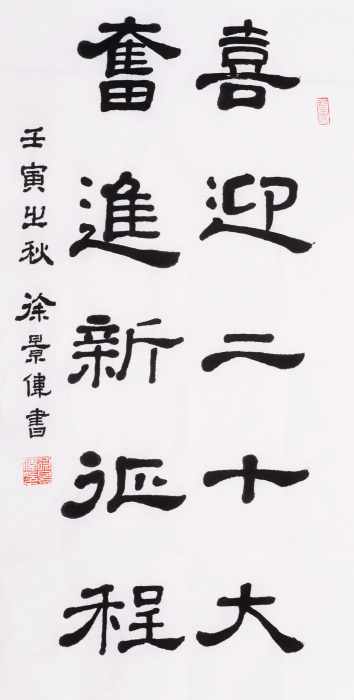 喜迎二十大
奮進新征程
壬寅之秋 徐景偉書